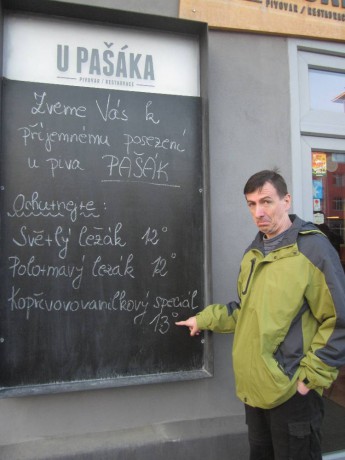 PIVOVAR / RESTAURACE
U PAŠÁKA
PIVOVAR / RESTAURACE
Zveme Vás k
příjemnému posezení
u piva PAŠÁK
Ochutnejte:
Světlý ležák 12°
Polotmavý ležák 12°
Kopřivovovanilkový speciál
13°